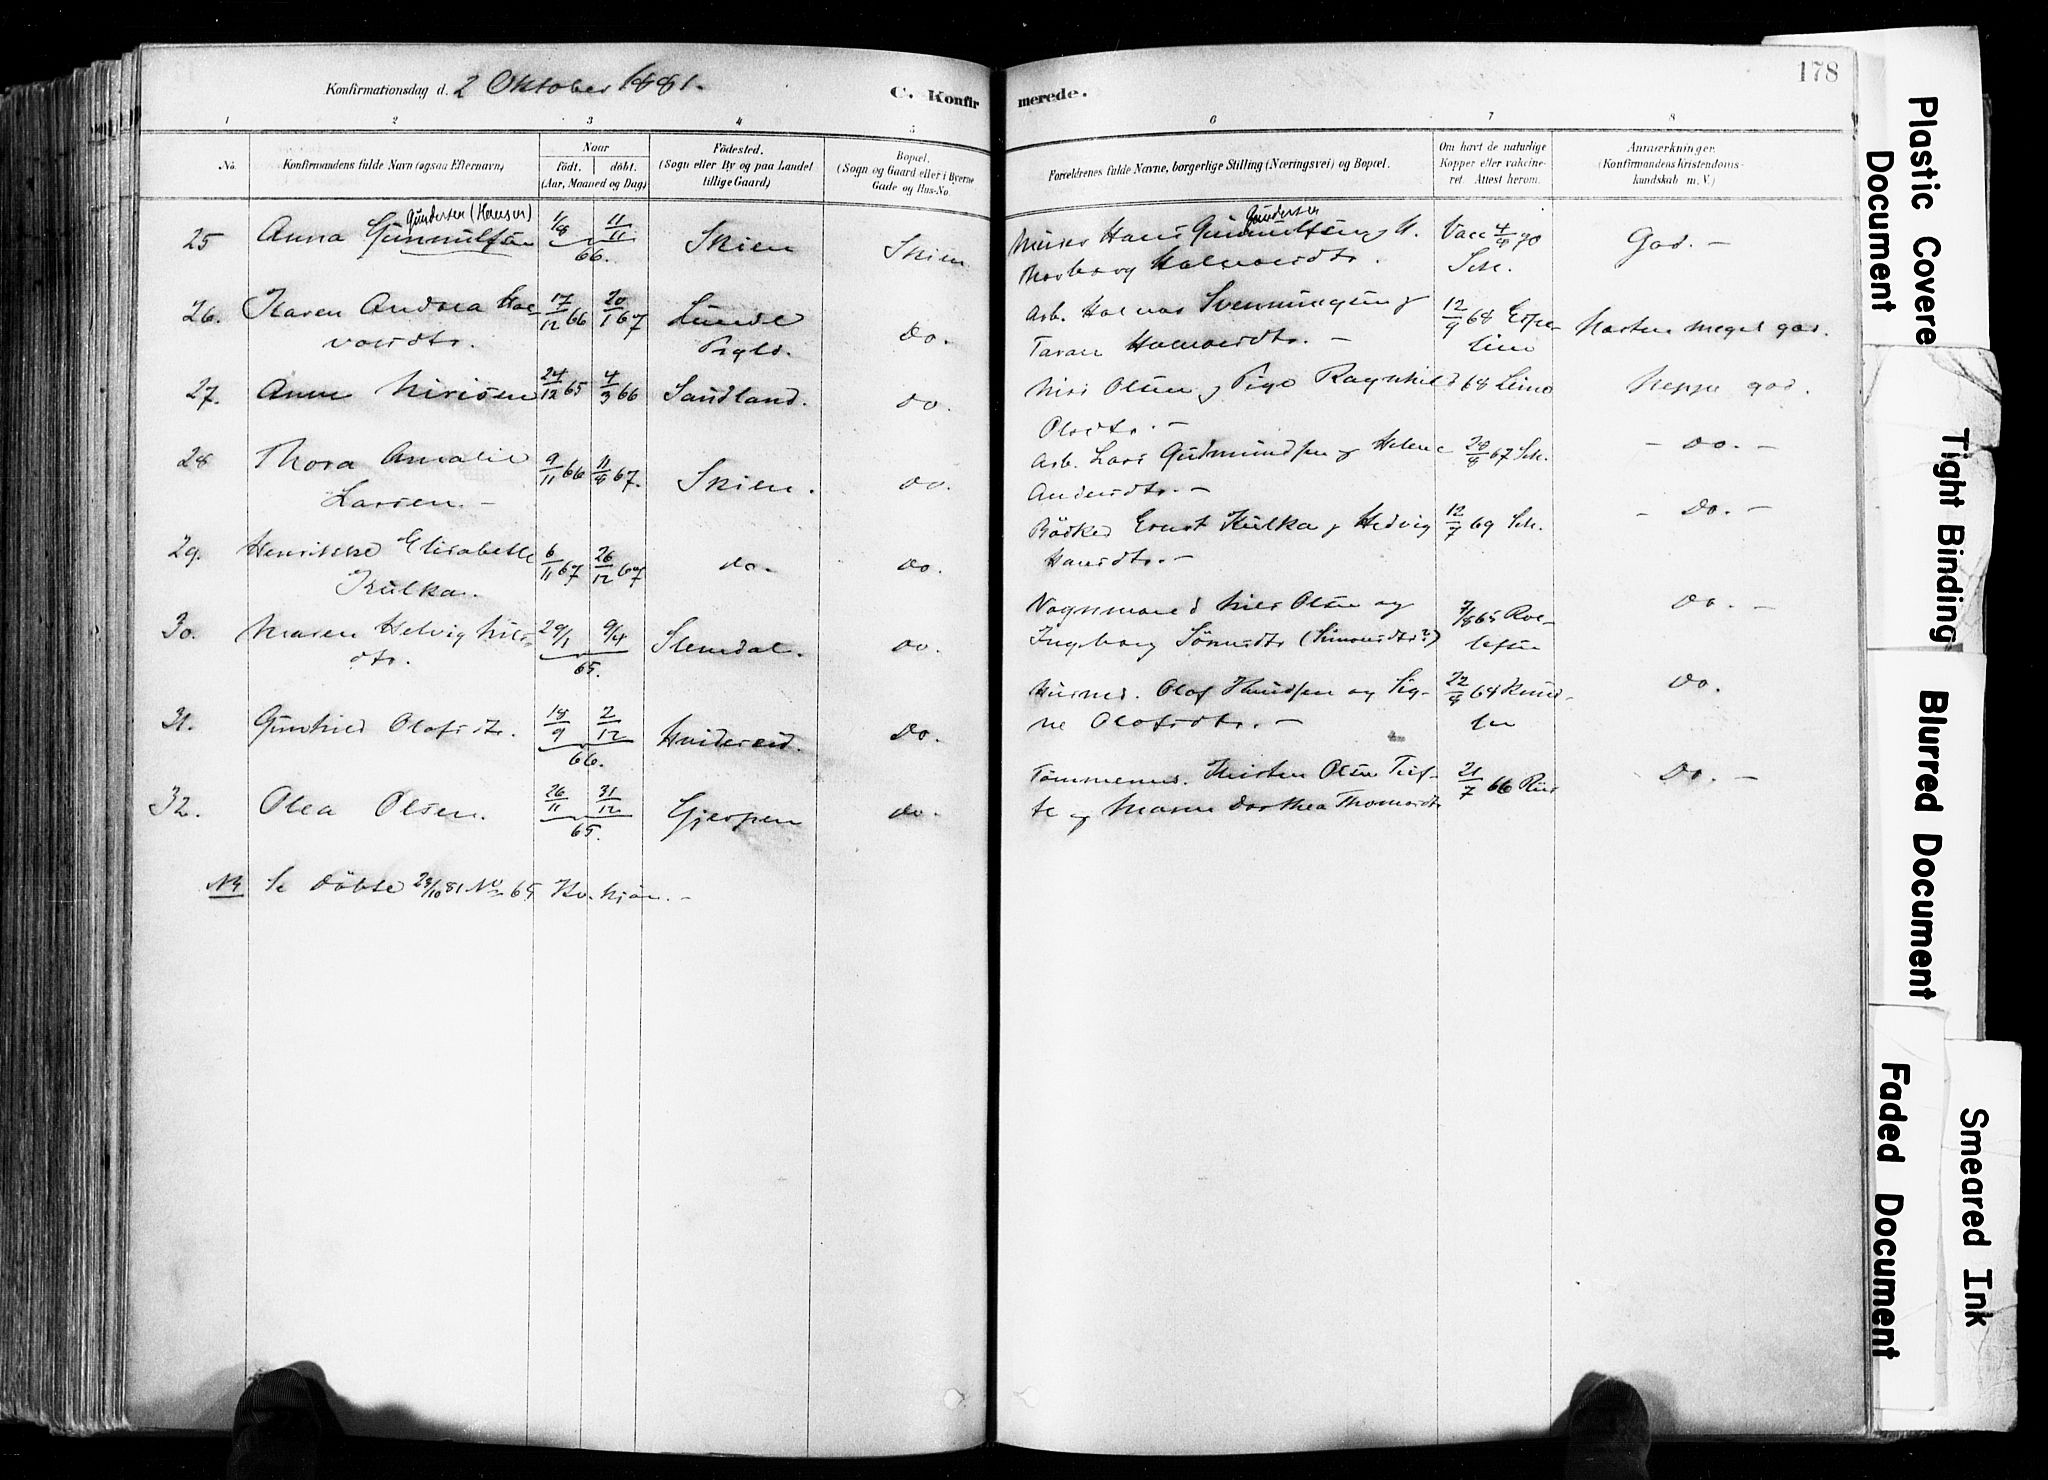 178
Konfirmationsdag d. 2 Oktober 1881.
C. Konfirmerede.
1 2 3 4 5 6 7 8
No.
Konfirmandens fulde Navn (ogsaa Efternavn)
Naar
födt. döbt.
(Aar, Maaned og Dag)
Födested.
(Sogn eller By og paa Landet
tillige Gaard)
Bopæl.
(Sogn og Gaard eller i Byerne
Gade og Hus-No
Forældrenes fulde Navne, borgerlige Stilling (Næringsvei) og Bopæl.
Om havt de naturlige
Kopper eller vakcine-
ret. Attest herom.
Anmærkninger.
(Konfirmandens Kristendoms-
kundskab m. V.)
Gundersen (Hansen)
25 Anna Gunnulfsen 1/8 11/11 66. Skien Skien
Gundersen
Murer Hans Gunnulfsen og
Thorborg Halvorsdtr.
Vacc 4/8 70
Sch.
God. -
26. Karen Andrea Hal-
vorsdtr.
17/12 66 20/1 67 Lunde
Prgld.
do.
Arb. Halvor Svenningsen og
Taran Halvorsdtr. -
12/9 68
Næsten meget god.
27. Anne Nirisen 24/12 65 4/3 66 Sandland. do.
Niri Olsen og Pige Ragnhild
Olsdtr. -
68
Neppe god.
28 Thora Amalie
Larsen. -
9/11 66 11/8 67. Skien. do.
Arb. Lars Gudmundsen og Helene
Andersdtr. -
28/8 67 Sch.
- do. -
29. Henrikke Elisabeth
Kulka.
6/11 67 26/12 67 do. do.
Bödker Ernst Kulka og Hedvig
Hansdtr. -
12/7 69 Sch.
- do. -
30. Maren Helvig Nils-
dtr.
29/1 9/4 65. Slemdal. do.
Vognmand Nils Olsen og
Ingeborg Sörensdtr (Simonsdtr?)
7/8 65 Roe-
lefsen
do. -
31. Gunhild Olafsdtr. 18/9 2/12 66. Hvideseid. do.
Husmd. Olaf Knudsen og Sig-
ne Olafsdtr. -
22/9 68 Knud-
sen
do.
32. Olea Olsen. 26/11 31/12 65. Gjerpen do.
Tömmermd. Kristen Olsen Tuf-
te og Maren Dorthea Thomasdtr
21/7 66
do. -
NB Se Döbte 28/10 81 No 65 Kv. kjön. -
Plastic Covered
Document
Tight Binding
Blurred Document
Faded Document
Smeared Ink